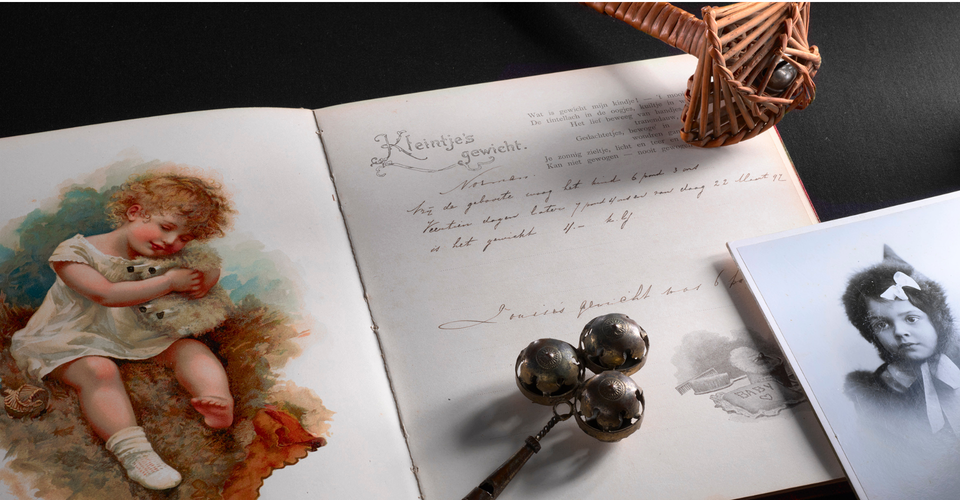 Kleintje's
gewicht.
Wat is gewicht mijn kindje? — 't
De tintellach in de oogjes, kuiltje in
Het lief beweeg van handjes
Gedachtetjes, bewegi
Je zonnig zieltje, licht en
Kan niet gewogen — nooit
Norman.
bij de geboorte woog het kind 6 pond 3 ons
Veertien dagen later 7 pond 4 onsen van daag 22 Maart 92
is het gewicht 4.- k.g
Louise's gewicht was 6
BABY